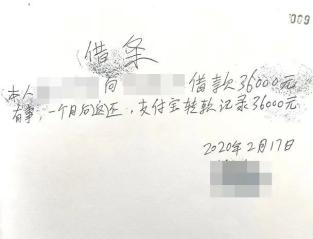 009
借条
本人 向 借款36000元
有事,一个月后返还,支付宝转款记录36000元
2020年2月17日